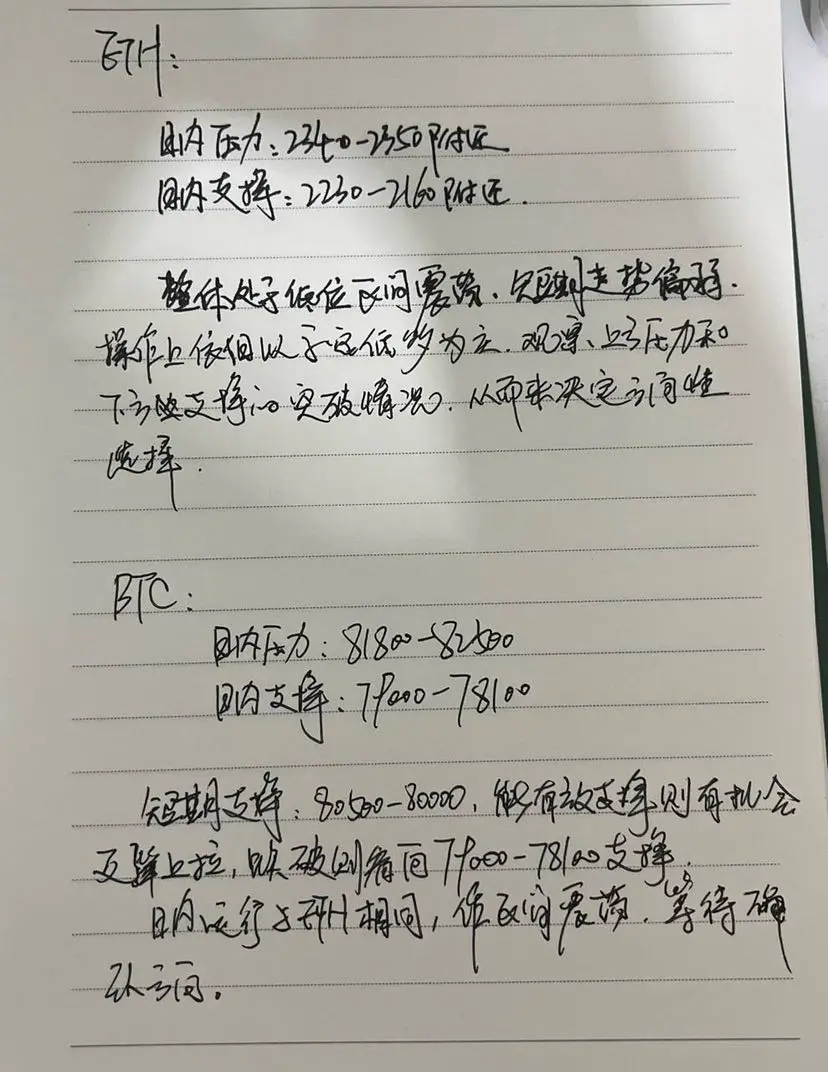 ETH:
日内压力:2340-2350附近
日内支撑:2230-2160附近.
整体处于低位区间震荡.短期走势偏弱.
操作上依旧以高空低多为主.观察上方压力和
下方支撑的突破情况.从而来决定方向性
选择.
BTC:
日内压力:81800-82500
日内支撑:79000-78100
短期支撑:80500-80000,能有效支撑则有机会
反弹上拉,跌破则看向79000-78100支撑.
日内运行与ETH相同,作区间震荡.等待确
认方向.